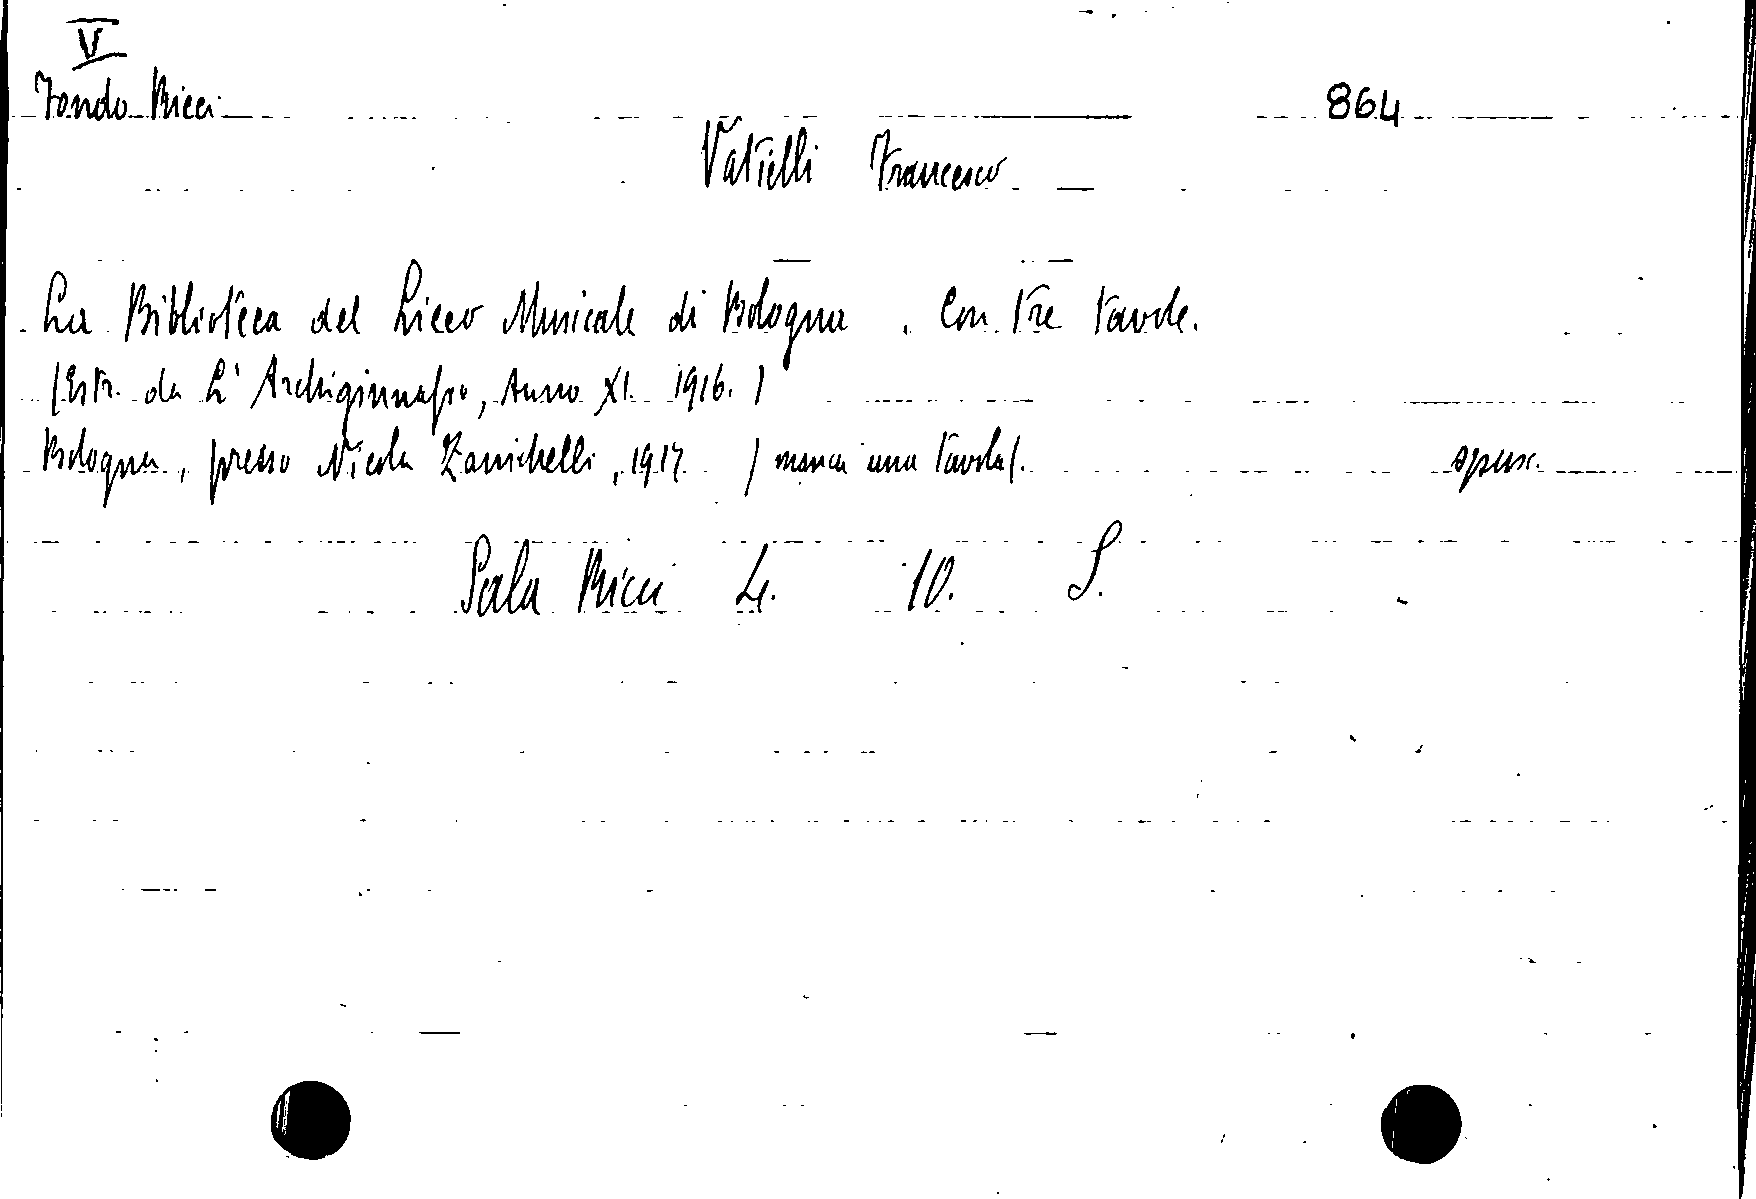 V
Fondo Ricci 864
Vatielli Francesco
La Biblioteca del Liceo Musicale di Bologna . Con tre tavole.
(Estr. da L'Archiginnasio, Anno XI. 1916.)
Bologna, presso Nicola Zanichelli, 1917. (manca una tavola). opusc.
Sala Ricci 4. 10. S.